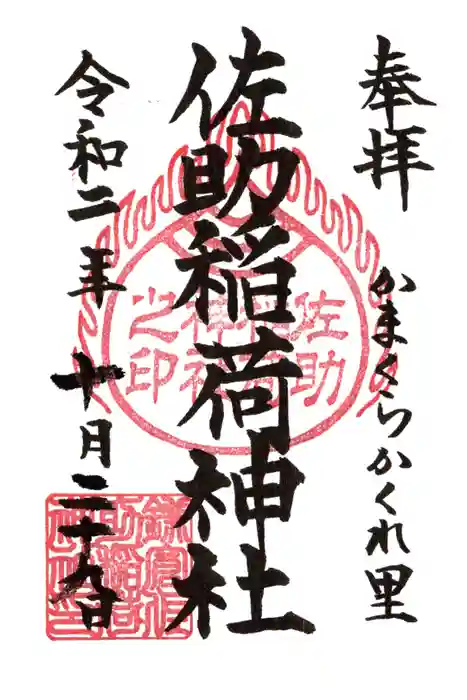 奉拝
かまくらかくれ里
佐助稲荷神社
令和二年 十月二十九日
佐助
稲荷
神社
之印